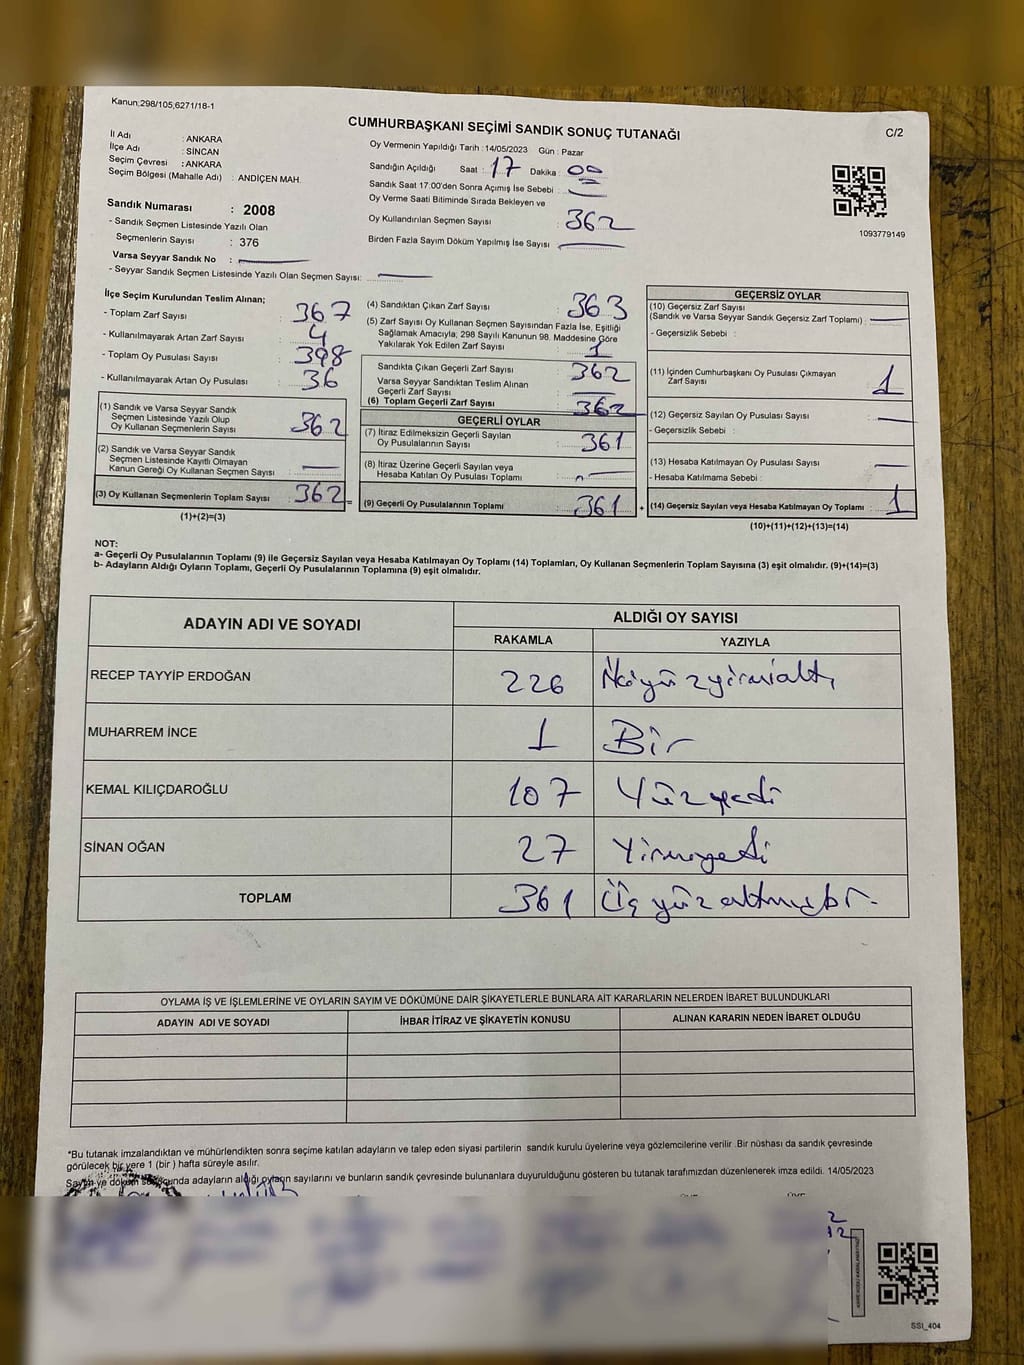 Kanun;298/105,6271/18-1
CUMHURBAŞKANI SEÇİMİ SANDIK SONUÇ TUTANAĞI
C/2
İl Adı : ANKARA
İlçe Adı : SİNCAN
Seçim Çevresi : ANKARA
Seçim Bölgesi (Mahalle Adı) : ANDİÇEN MAH.
Sandık Numarası : 2008
- Sandık Seçmen Listesinde Yazılı Olan
Seçmenlerin Sayısı : 376
Varsa Seyyar Sandık No :
- Seyyar Sandık Seçmen Listesinde Yazılı Olan Seçmen Sayısı:
Oy Vermenin Yapıldığı Tarih : 14/05/2023 Gün : Pazar
Sandığın Açıldığı Saat : 17 Dakika : 00
Sandık Saat 17:00'den Sonra Açımış İse Sebebi :
Oy Verme Saati Bitiminde Sırada Bekleyen ve
Oy Kullandırılan Seçmen Sayısı : 362
Birden Fazla Sayım Döküm Yapılmış İse Sayısı :
1093779149
İlçe Seçim Kurulundan Teslim Alınan;
- Toplam Zarf Sayısı : 367
- Kullanılmayarak Artan Zarf Sayısı : 4
- Toplam Oy Pusulası Sayısı : 398
- Kullanılmayarak Artan Oy Pusulası : 36
(1) Sandık ve Varsa Seyyar Sandık
Seçmen Listesinde Yazılı Olup
Oy Kullanan Seçmenlerin Sayısı : 362
(2) Sandık ve Varsa Seyyar Sandık
Seçmen Listesinde Kayıtlı Olmayan
Kanun Gereği Oy Kullanan Seçmen Sayısı :
(3) Oy Kullanan Seçmenlerin Toplam Sayısı : 362 =
(1)+(2)=(3)
(4) Sandıktan Çıkan Zarf Sayısı : 363
(5) Zarf Sayısı Oy Kullanan Seçmen Sayısından Fazla İse, Eşitliği
Sağlamak Amacıyla; 298 Sayılı Kanunun 98. Maddesine Göre
Yakılarak Yok Edilen Zarf Sayısı : 1
Sandıkta Çıkan Geçerli Zarf Sayısı : 362
Varsa Seyyar Sandıktan Teslim Alınan
Geçerli Zarf Sayısı :
(6) Toplam Geçerli Zarf Sayısı : 362
GEÇERLİ OYLAR
(7) İtiraz Edilmeksizin Geçerli Sayılan
Oy Pusulalarının Sayısı : 361
(8) İtiraz Üzerine Geçerli Sayılan veya
Hesaba Katılan Oy Pusulası Toplamı :
(9) Geçerli Oy Pusulalarının Toplamı : 361 +
GEÇERSİZ OYLAR
(10) Geçersiz Zarf Sayısı
(Sandık ve Varsa Seyyar Sandık Geçersiz Zarf Toplamı) :
- Geçersizlik Sebebi :
(11) İçinden Cumhurbaşkanı Oy Pusulası Çıkmayan
Zarf Sayısı : 1
(12) Geçersiz Sayılan Oy Pusulası Sayısı :
- Geçersizlik Sebebi :
(13) Hesaba Katılmayan Oy Pusulası Sayısı :
- Hesaba Katılmama Sebebi :
(14) Geçersiz Sayılan veya Hesaba Katılmayan Oy Toplamı : 1
(10)+(11)+(12)+(13)=(14)
NOT:
a- Geçerli Oy Pusulalarının Toplamı (9) ile Geçersiz Sayılan veya Hesaba Katılmayan Oy Toplamı (14) Toplamları, Oy Kullanan Seçmenlerin Toplam Sayısına (3) eşit olmalıdır. (9)+(14)=(3)
b- Adayların Aldığı Oyların Toplamı, Geçerli Oy Pusulalarının Toplamına (9) eşit olmalıdır.
ADAYIN ADI VE SOYADI
ALDIĞI OY SAYISI
RAKAMLA YAZIYLA
RECEP TAYYİP ERDOĞAN 226 İkiyüzyirmialtı
MUHARREM İNCE 1 Bir
KEMAL KILIÇDAROĞLU 107 Yüzyedi
SİNAN OĞAN 27 Yirmiyedi
TOPLAM 361 Üçyüzaltmışbir.
OYLAMA İŞ VE İŞLEMLERİNE VE OYLARIN SAYIM VE DÖKÜMÜNE DAİR ŞİKAYETLERLE BUNLARA AİT KARARLARIN NELERDEN İBARET BULUNDUKLARI
ADAYIN ADI VE SOYADI İHBAR İTİRAZ VE ŞİKAYETİN KONUSU ALINAN KARARIN NEDEN İBARET OLDUĞU
*Bu tutanak imzalandıktan ve mühürlendikten sonra seçime katılan adayların ve talep eden siyasi partilerin sandık kurulu üyelerine veya gözlemcilerine verilir .Bir nüshası da sandık çevresinde
görülecek bir yere 1 (bir ) hafta süreyle asılır.
Sayım ve döküm sonucunda adayların aldığı oyların sayılarını ve bunların sandık çevresinde bulunanlara duyurulduğunu gösteren bu tutanak tarafımızdan düzenlenerek imza edildi. 14/05/2023
SSI_404